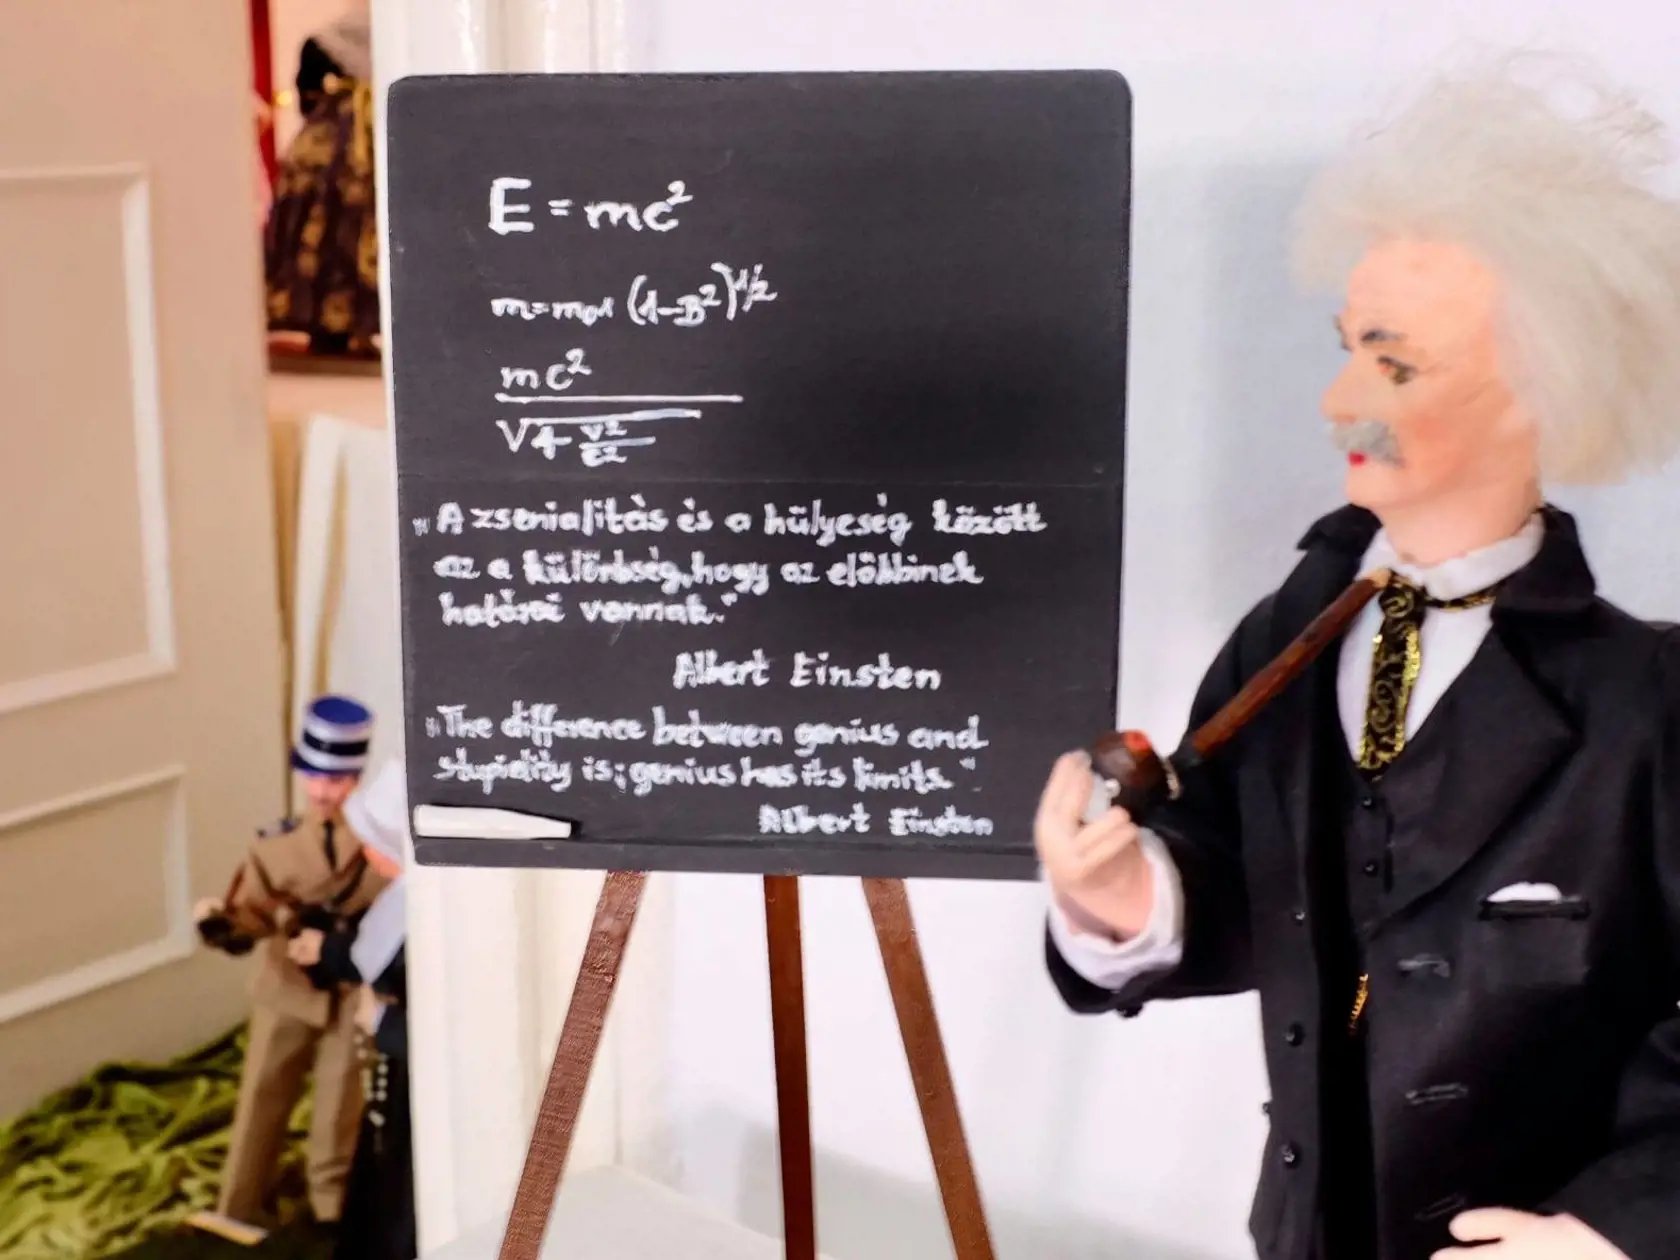 E = mc²
m = mo1 (1-B²)^1/2
mc²
√4- v²/c²
"A zsenialitás és a hülyeség között
az a különbség, hogy az előbbinek
határai vannak."
Albert Einsten
"The difference between genius and
stupidity is; genius has its limits."
Albert Einsten